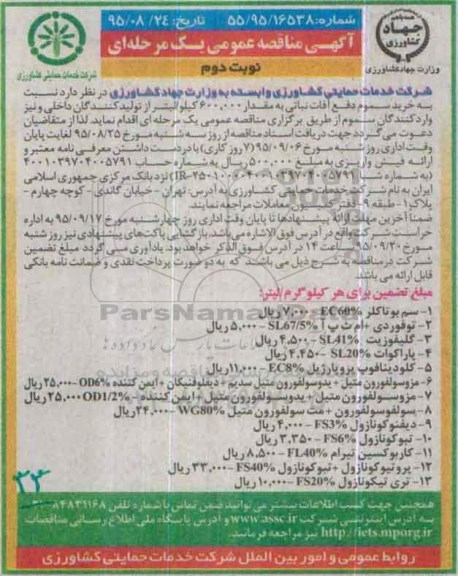 شماره: ۵۵/۹۵/۱۶۵۳۸ تاریخ: ۹۵/۰۸/۲۴
آگهی مناقصه عمومی یک مرحله‌ای
نوبت دوم
جهاد کشاورزی
وزارت جهاد کشاورزی
شرکت خدمات حمایتی کشاورزی
شرکت خدمات حمایتی کشاورزی وابسته به وزارت جهاد کشاورزی در نظر دارد نسبت
به خرید سموم دفع آفات نباتی به مقدار ۶۰۰,۰۰۰ کیلو/لیتر از تولیدکنندگان داخلی و نیز
واردکنندگان سموم از طریق برگزاری مناقصه عمومی یک مرحله ای اقدام نماید. لذا از متقاضیان
دعوت می گردد جهت دریافت اسناد مناقصه از روز سه شنبه مورخ ۹۵/۰۸/۲۵ لغایت پایان
وقت اداری روز شنبه مورخ ۹۵/۰۹/۰۶ (۷ روز کاری) با در دست داشتن معرفی نامه معتبر و
ارائه فیش واریزی به مبلغ ۵۰۰,۰۰۰ ریال به شماره حساب ۴۰۰۱۰۳۹۷۰۴۰۰۵۷۹۱
نزد بانک مرکزی جمهوری اسلامی
ایران به نام شرکت خدمات حمایتی کشاورزی به آدرس: تهران - خیابان گاندی - کوچه چهارم -
پلاک ۱ - طبقه ۹ - دفتر معاملات مراجعه نمایند.
ضمناً آخرین مهلت ارائه پیشنهادها تا پایان وقت اداری روز چهارشنبه مورخ ۹۵/۰۹/۱۷ به اداره
حراست شرکت واقع در آدرس فوق الاشاره می باشد. بازگشایی پاکت‌های پیشنهادی نیز روز شنبه
مورخ ۹۵/۰۹/۲۰ ساعت ۱۴ در آدرس فوق الذکر خواهد بود. یادآوری می گردد مبلغ تضمین
شرکت در مناقصه به شرح ذیل می باشند که به دو صورت پرداخت نقدی و ضمانت نامه بانکی
قابل ارائه می باشد.
مبلغ تضمین برای هر کیلوگرم/لیتر:
۱- سم بوتاکلر EC60% -۷,۰۰۰ ریال
۲- توفوردی + ام ث پ آ SL67/5% - ۵,۰۰۰ ریال
۳- گلیفوزیت SL41% -۴,۵۰۰ ریال
۴- پاراکوات SL20% -۴,۴۵۰ ریال
۵- کلودینافوپ پروپارژیل EC8% -۱۱,۰۰۰ ریال
۶- مزوسولفورون متیل + یدوسولفورون متیل سدیم + دیفلوفنیکان + ایمن کننده OD6% -۲۵,۰۰۰ ریال
۷- مزوسولفورون متیل + یدوسولفورون متیل + ایمن کننده OD1/2% -۲۵,۰۰۰ ریال
۸- سولفوسولفورون + مت سولفورون متیل WG80% -۲۴,۰۰۰ ریال
۹- دیفنوکونازول FS3% -۴,۰۰۰ ریال
۱۰- تبوکونازول FS6% -۳,۳۵۰ ریال
۱۱- کاربوکسین تیرام FL40% -۸,۵۰۰ ریال
۱۲- پروتیوکونازول + تبوکونازول FS40% -۳۳,۰۰۰ ریال
۱۳- تری تیکونازول FS20% -۱۰,۰۰۰ ریال
۲۳
همچنین جهت کسب اطلاعات بیشتر می توانید ضمن تماس با شماره تلفن
به آدرس اینترنتی شرکت www.assc.ir و آدرس پایگاه ملی اطلاع رسانی مناقصات
http://iets.mporg.ir نیز مراجعه فرمائید.
روابط عمومی و امور بین الملل شرکت خدمات حمایتی کشاورزی
ParsNamadData